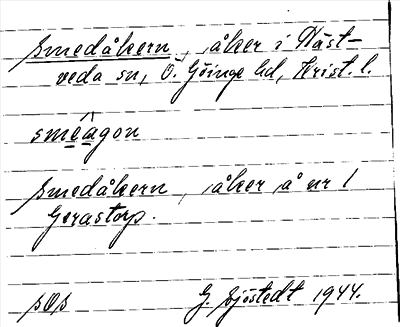 Smedåkern, åker i Häst-
veda sn, Ö. Göinge hd, Krist. l.
smeagon
Smedåkern, åker å nr 1
Gerastorp.
G. Sjöstedt 1944.